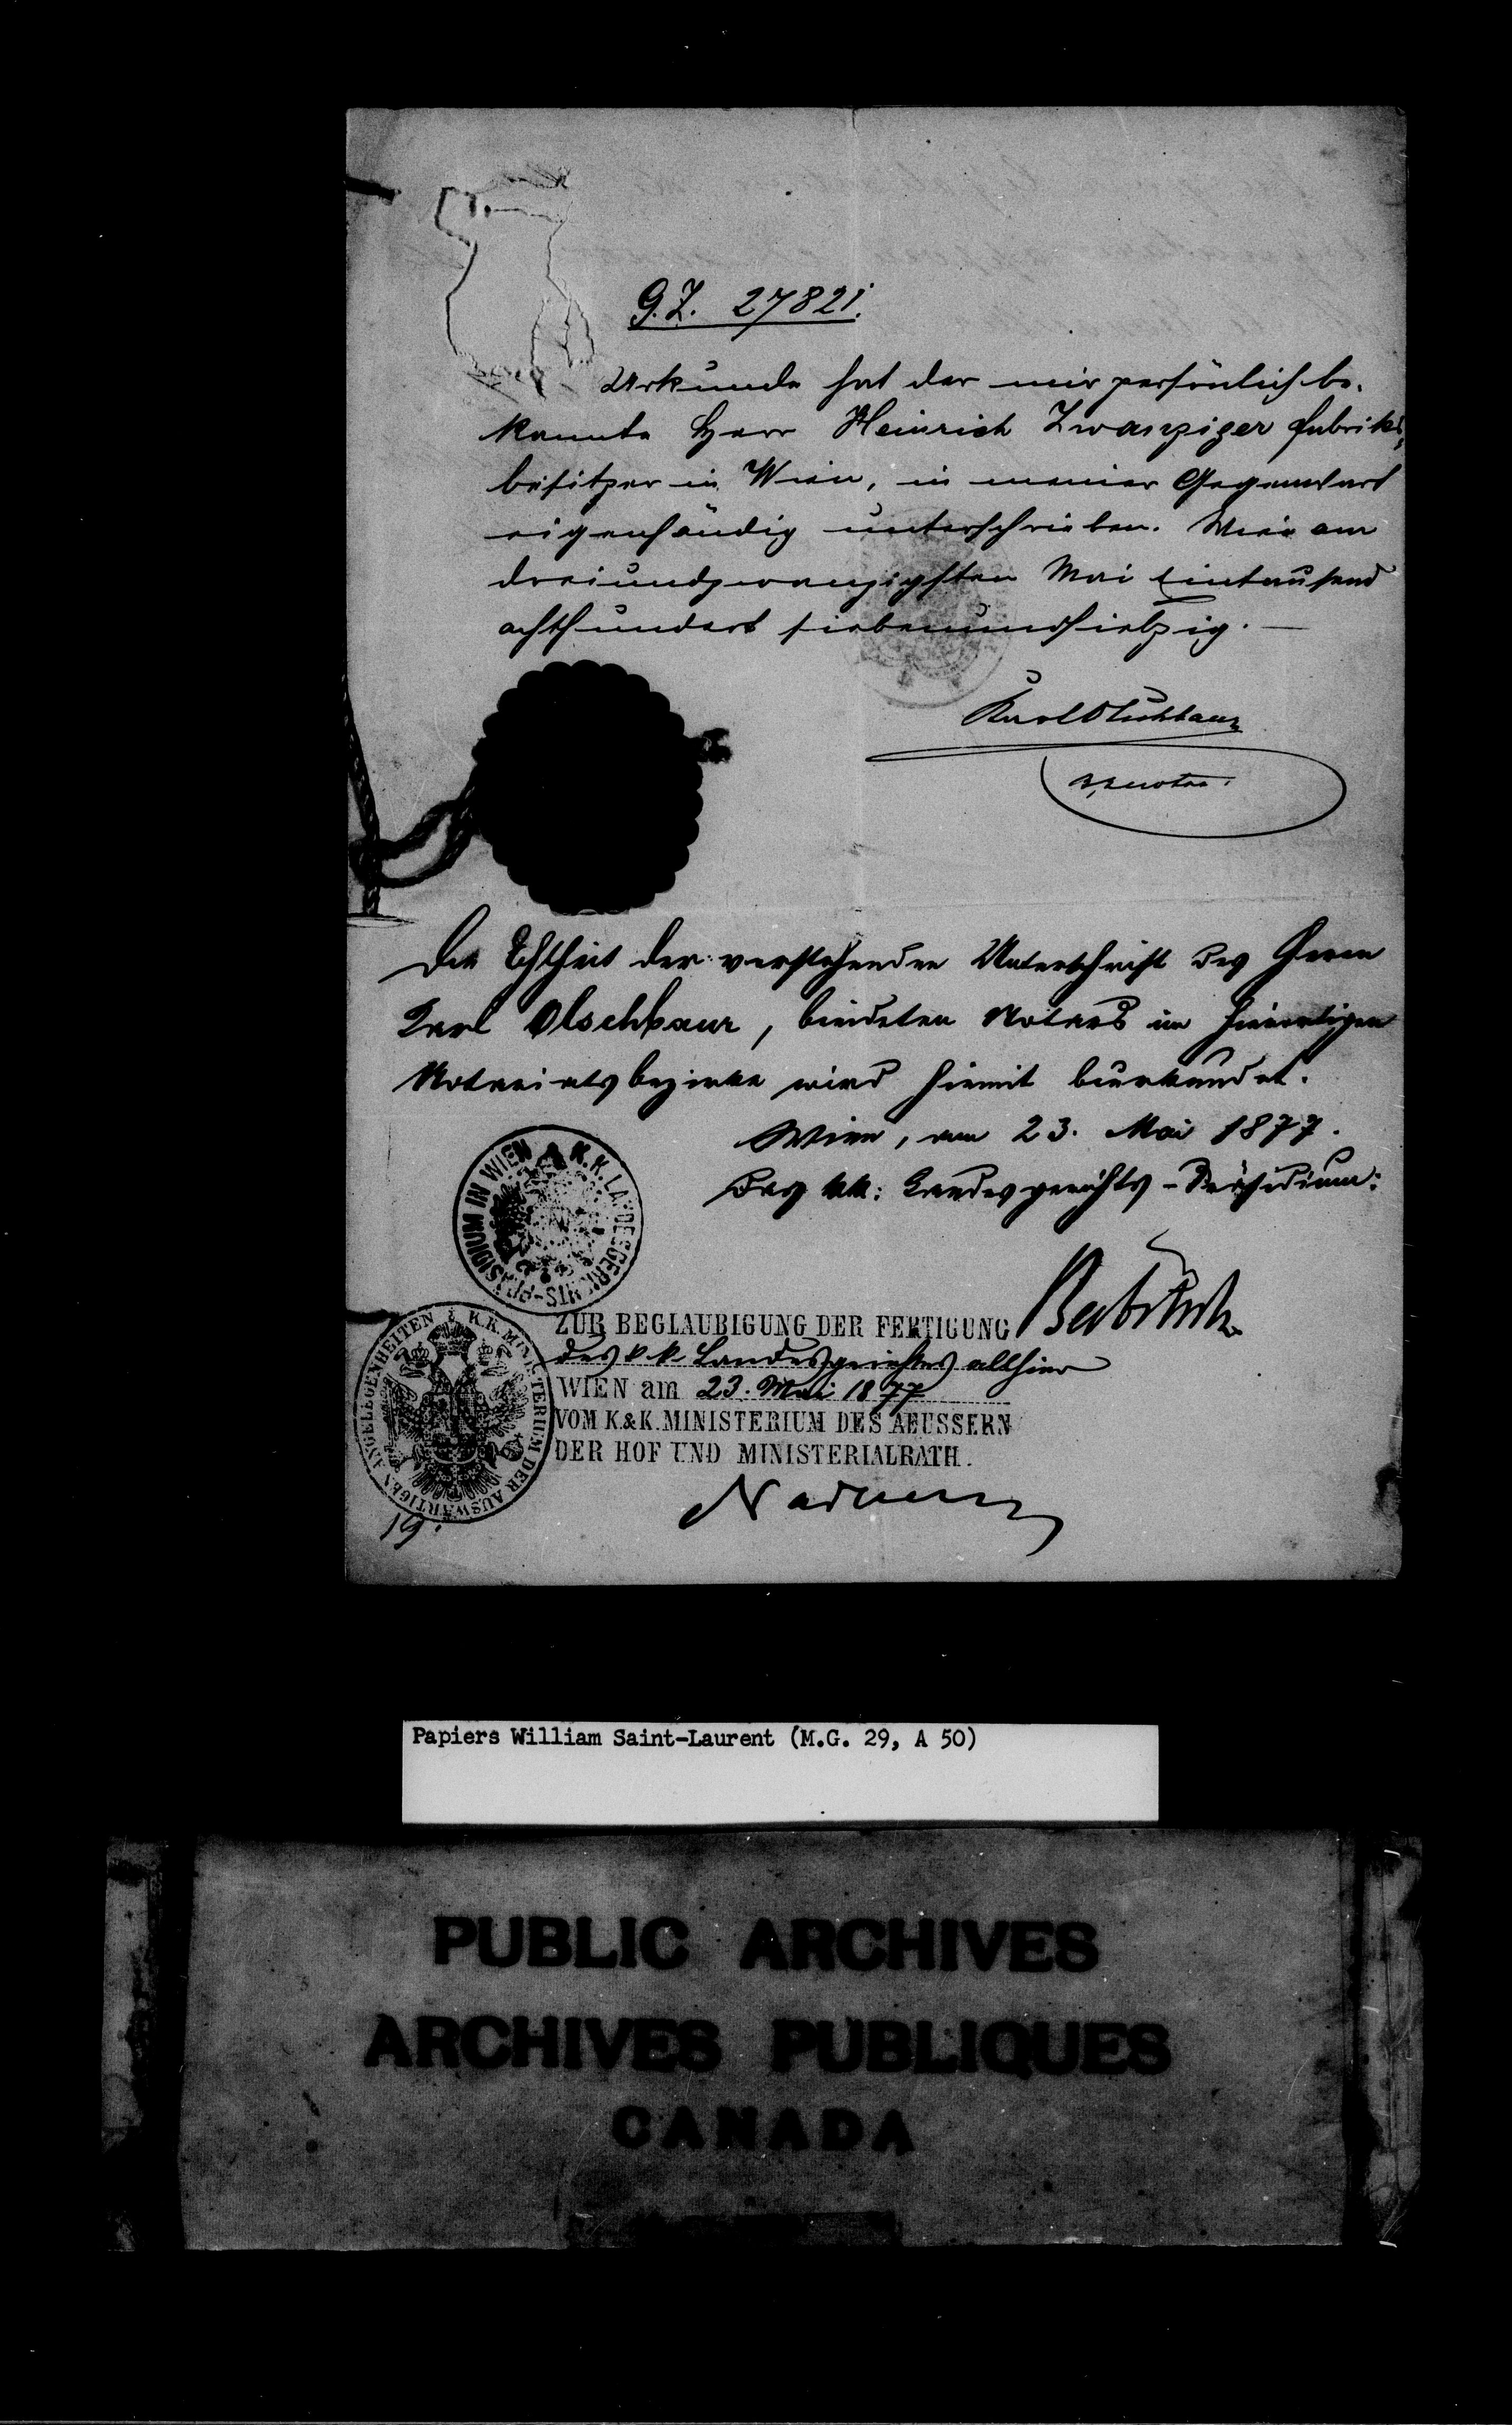 G.Z. 27821.
Urkunde hat der mir persönlich be-
kannte Herr Heinrich Zwanziger Fabriks-
besitzer in Wien, in meiner Gegenwart
eigenhändig unterschrieben. Wien am
dreiundzwanzigsten Mai Eintausend
achthundert siebenundsiebzig. —
Karl
Die Echtheit der vorstehenden Unterschrift des Herrn
Karl Olschbaur, beeideten Notars im hierortigen
Notariatsbezirke wird hiemit beurkundet.
Wien, am 23. Mai 1877.
Das kk: Landesgerichts-Präsidium:
K.K. LANDESGERICHTS-PRÄSIDIUM IN WIEN
ZUR BEGLAUBIGUNG DER FERTIGUNG
des k k Landesgerichtes allhier
WIEN am 23. Mai 1877
VOM K.&K. MINISTERIUM DES AEUSSERN
DER HOF UND MINISTERIALRATH.
K.K. MINISTERIUM DER AUSWÄRTIGEN ANGELEGENHEITEN
19.
Papiers William Saint-Laurent (M.G. 29, A 50)
PUBLIC ARCHIVES
ARCHIVES PUBLIQUES
CANADA